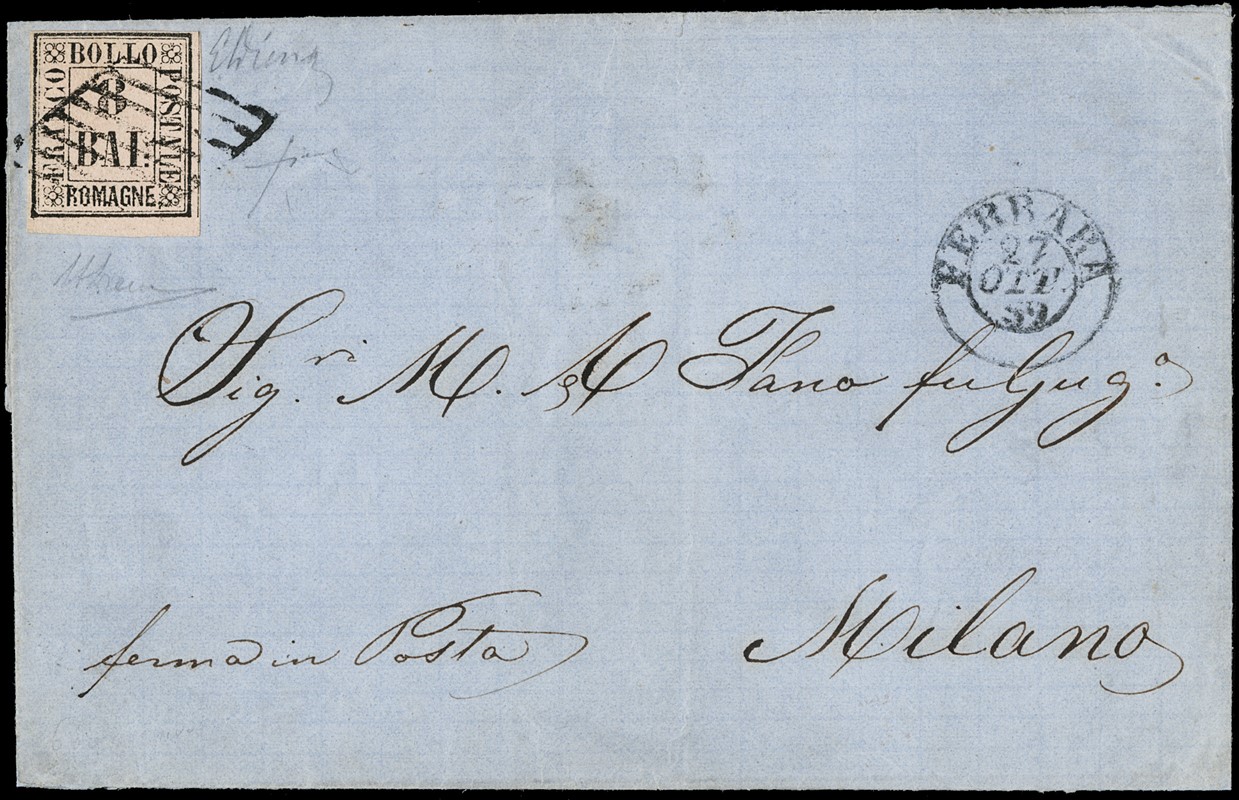 BOLLO
FRANCO
POSTALE
8
BAI.
ROMAGNE
FERRARA
27
OTT.
59
Sig.ri M. & A Fano fu Gug.o
ferma in Posta
Milano